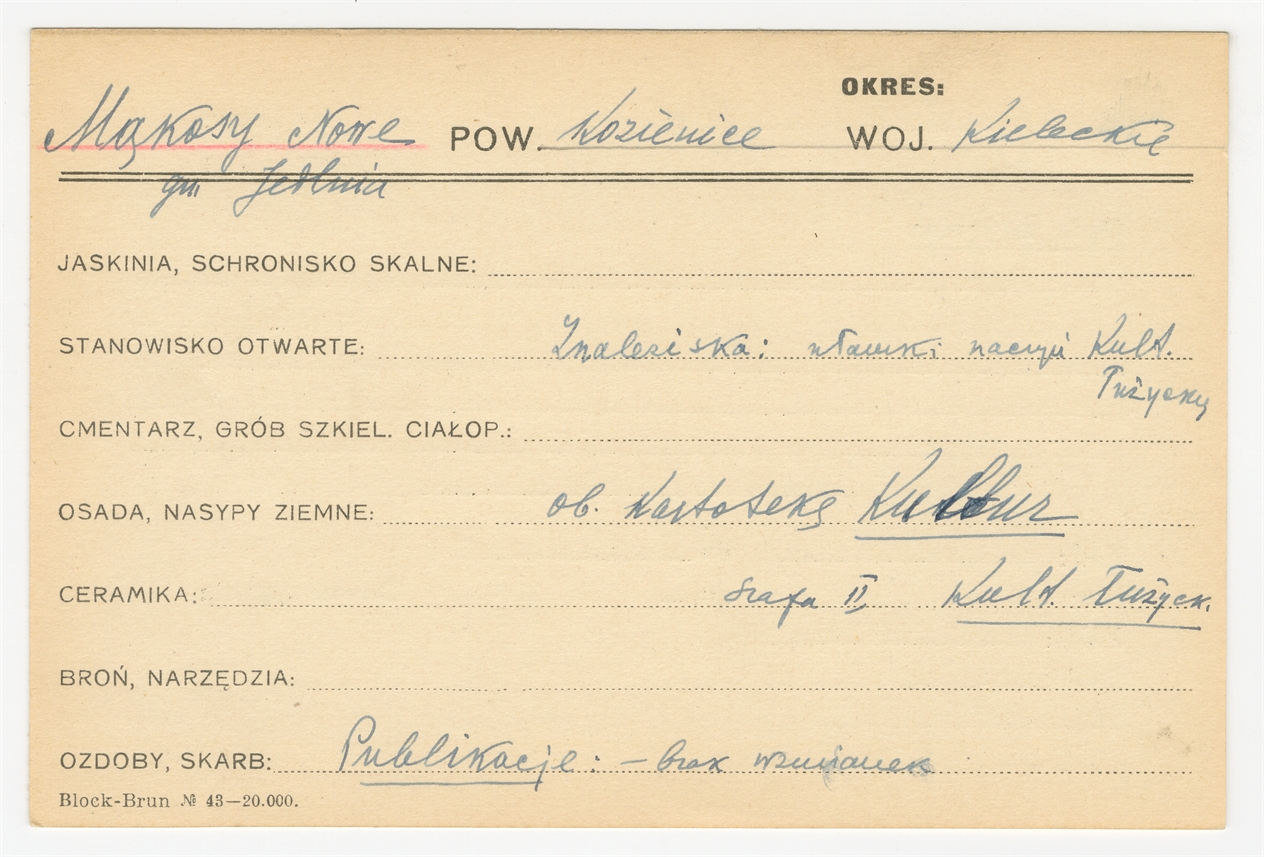 OKRES:
Mąkosy Nowe POW. Kozienice WOJ. Kieleckie
gm. Jedlnia
JASKINIA, SCHRONISKO SKALNE:
STANOWISKO OTWARTE: Znaleziska: ułamki naczyń Kult.
Łużyckiej
CMENTARZ, GRÓB SZKIEL. CIAŁOP.:
OSADA, NASYPY ZIEMNE: ob. Kartotekę Kultur
CERAMIKA: szafa II, Kult. Łużyck.
BROŃ, NARZĘDZIA:
OZDOBY, SKARB: Publikacje: – brak wzmianek
Block-Brun № 43—20.000.